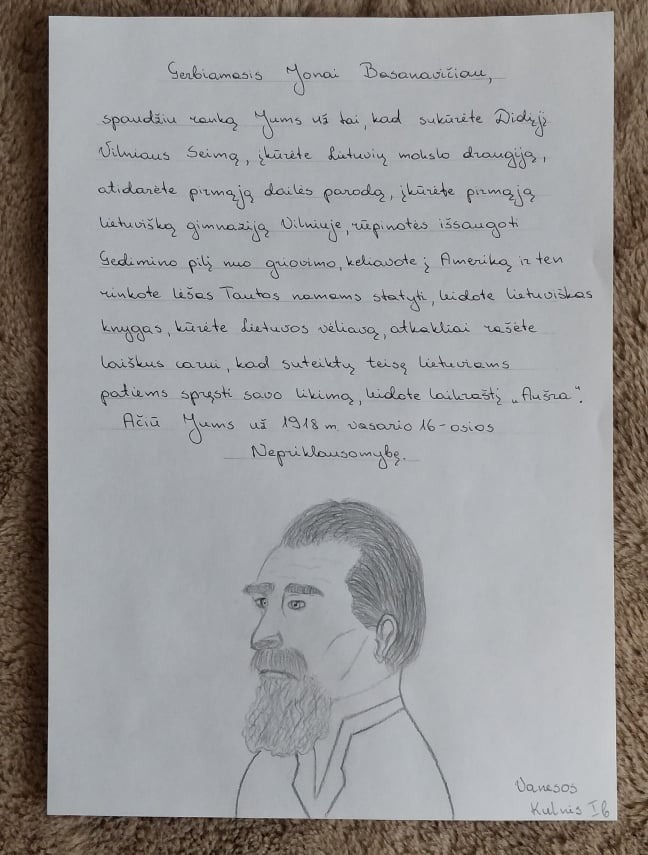 Gerbiamasis Jonai Basanavičiau,
spaudžiu ranką Jums už tai, kad sukūrėte Didįjį
Vilniaus Seimą, įkūrėte Lietuvių mokslo draugiją,
atidarėte pirmąją dailės parodą, įkūrėte pirmąją
lietuvišką gimnaziją Vilniuje, rūpinotės išsaugoti
Gedimino pilį nuo griovimo, keliavote į Ameriką ir ten
rinkote lėšas Tautos namams statyti, leidote lietuviškas
knygas, kūrėte Lietuvos vėliavą, atkakliai rašėte
laiškus carui, kad suteiktų teisę lietuviams
patiems spręsti savo likimą, leidote laikraštį „Aušra“.
Ačiū Jums už 1918 m. vasario 16-osios
Nepriklausomybę.
Vanesos
Kulnis Ib